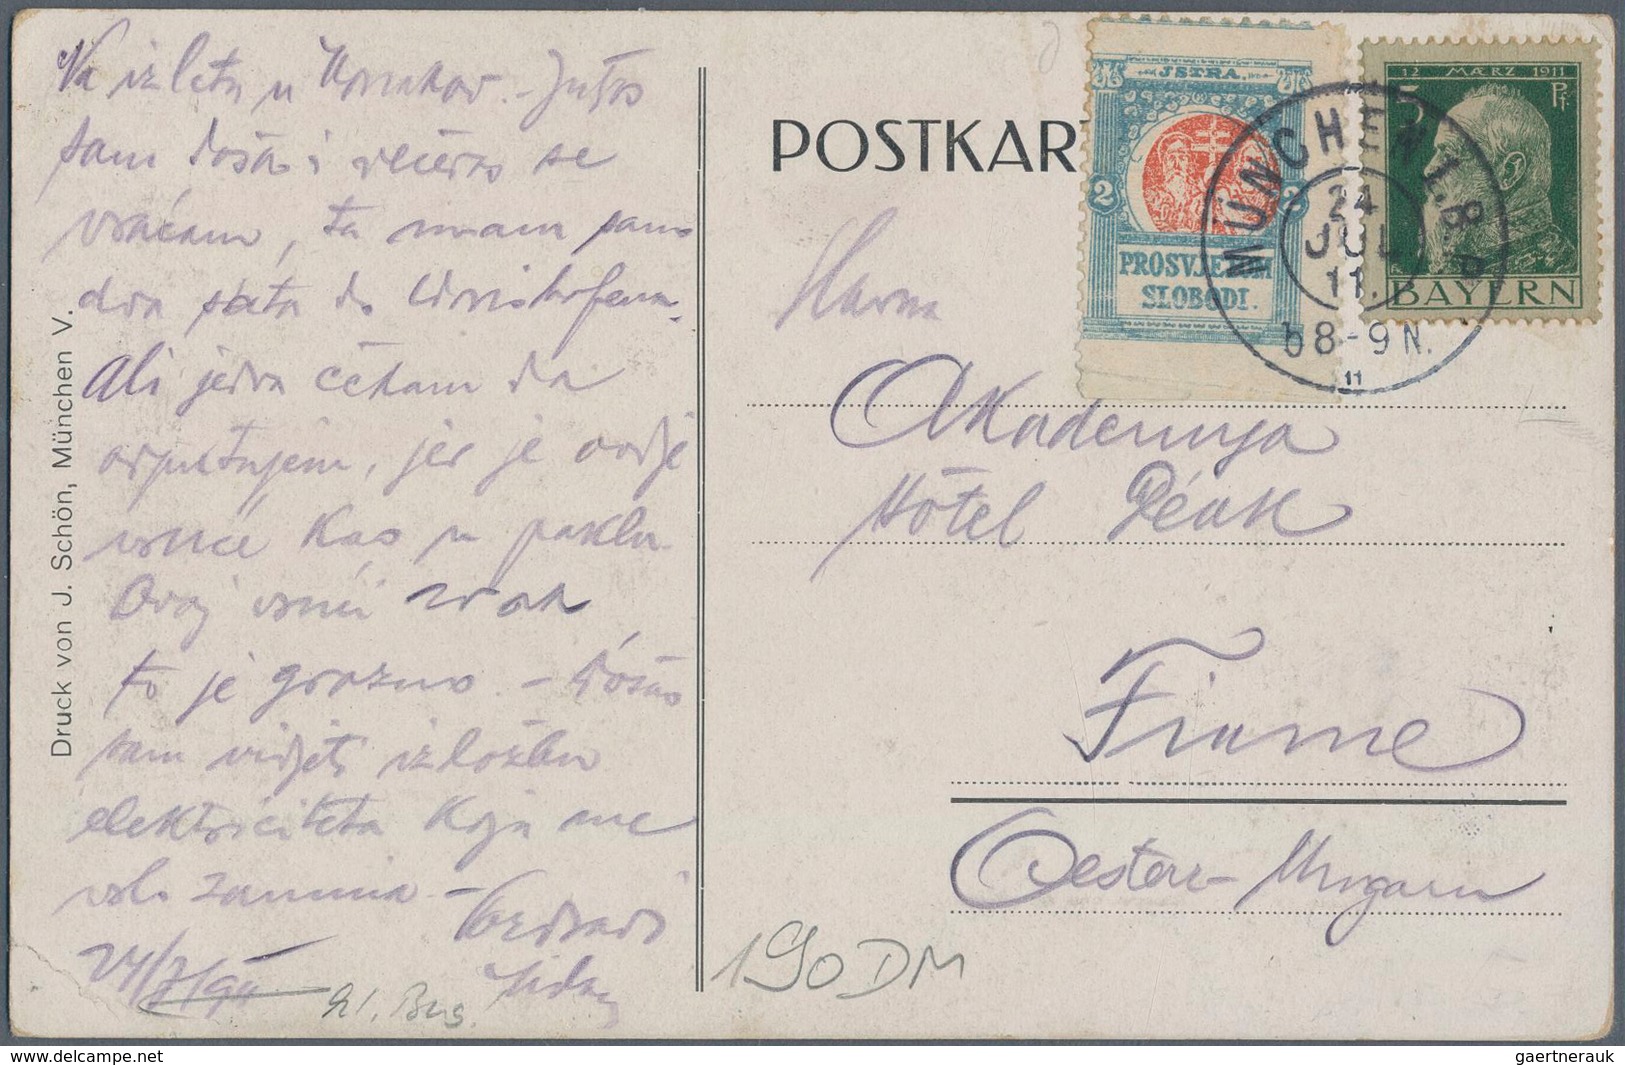 Na izletu u
Jutros
sam došao i večeras se
vraćam, tu imam samo
dva sata do
Ali jedva čekam da
otputujem, jer je ovdje
vruće kao u paklu.
Ovaj vrući zrak
to je grozno. – Došao
sam vidjeti izložbu
elektriciteta koja me
vrlo zanima –
24/7/911
Druck von J. Schön, München V.
POSTKAR
JSTRA.
2 2
PROSVJETOM
SLOBODI.
12 MÆRZ 1911
5 Pf.
BAYERN
MÜNCHEN I.B.P.
24
JUL
11.
b8-9N.
11
Slavna
Akademija
Hôtel Déak
Fiume
Oesterr-Ungarn
190 DM
www.delcampe.net
gaertnerauk